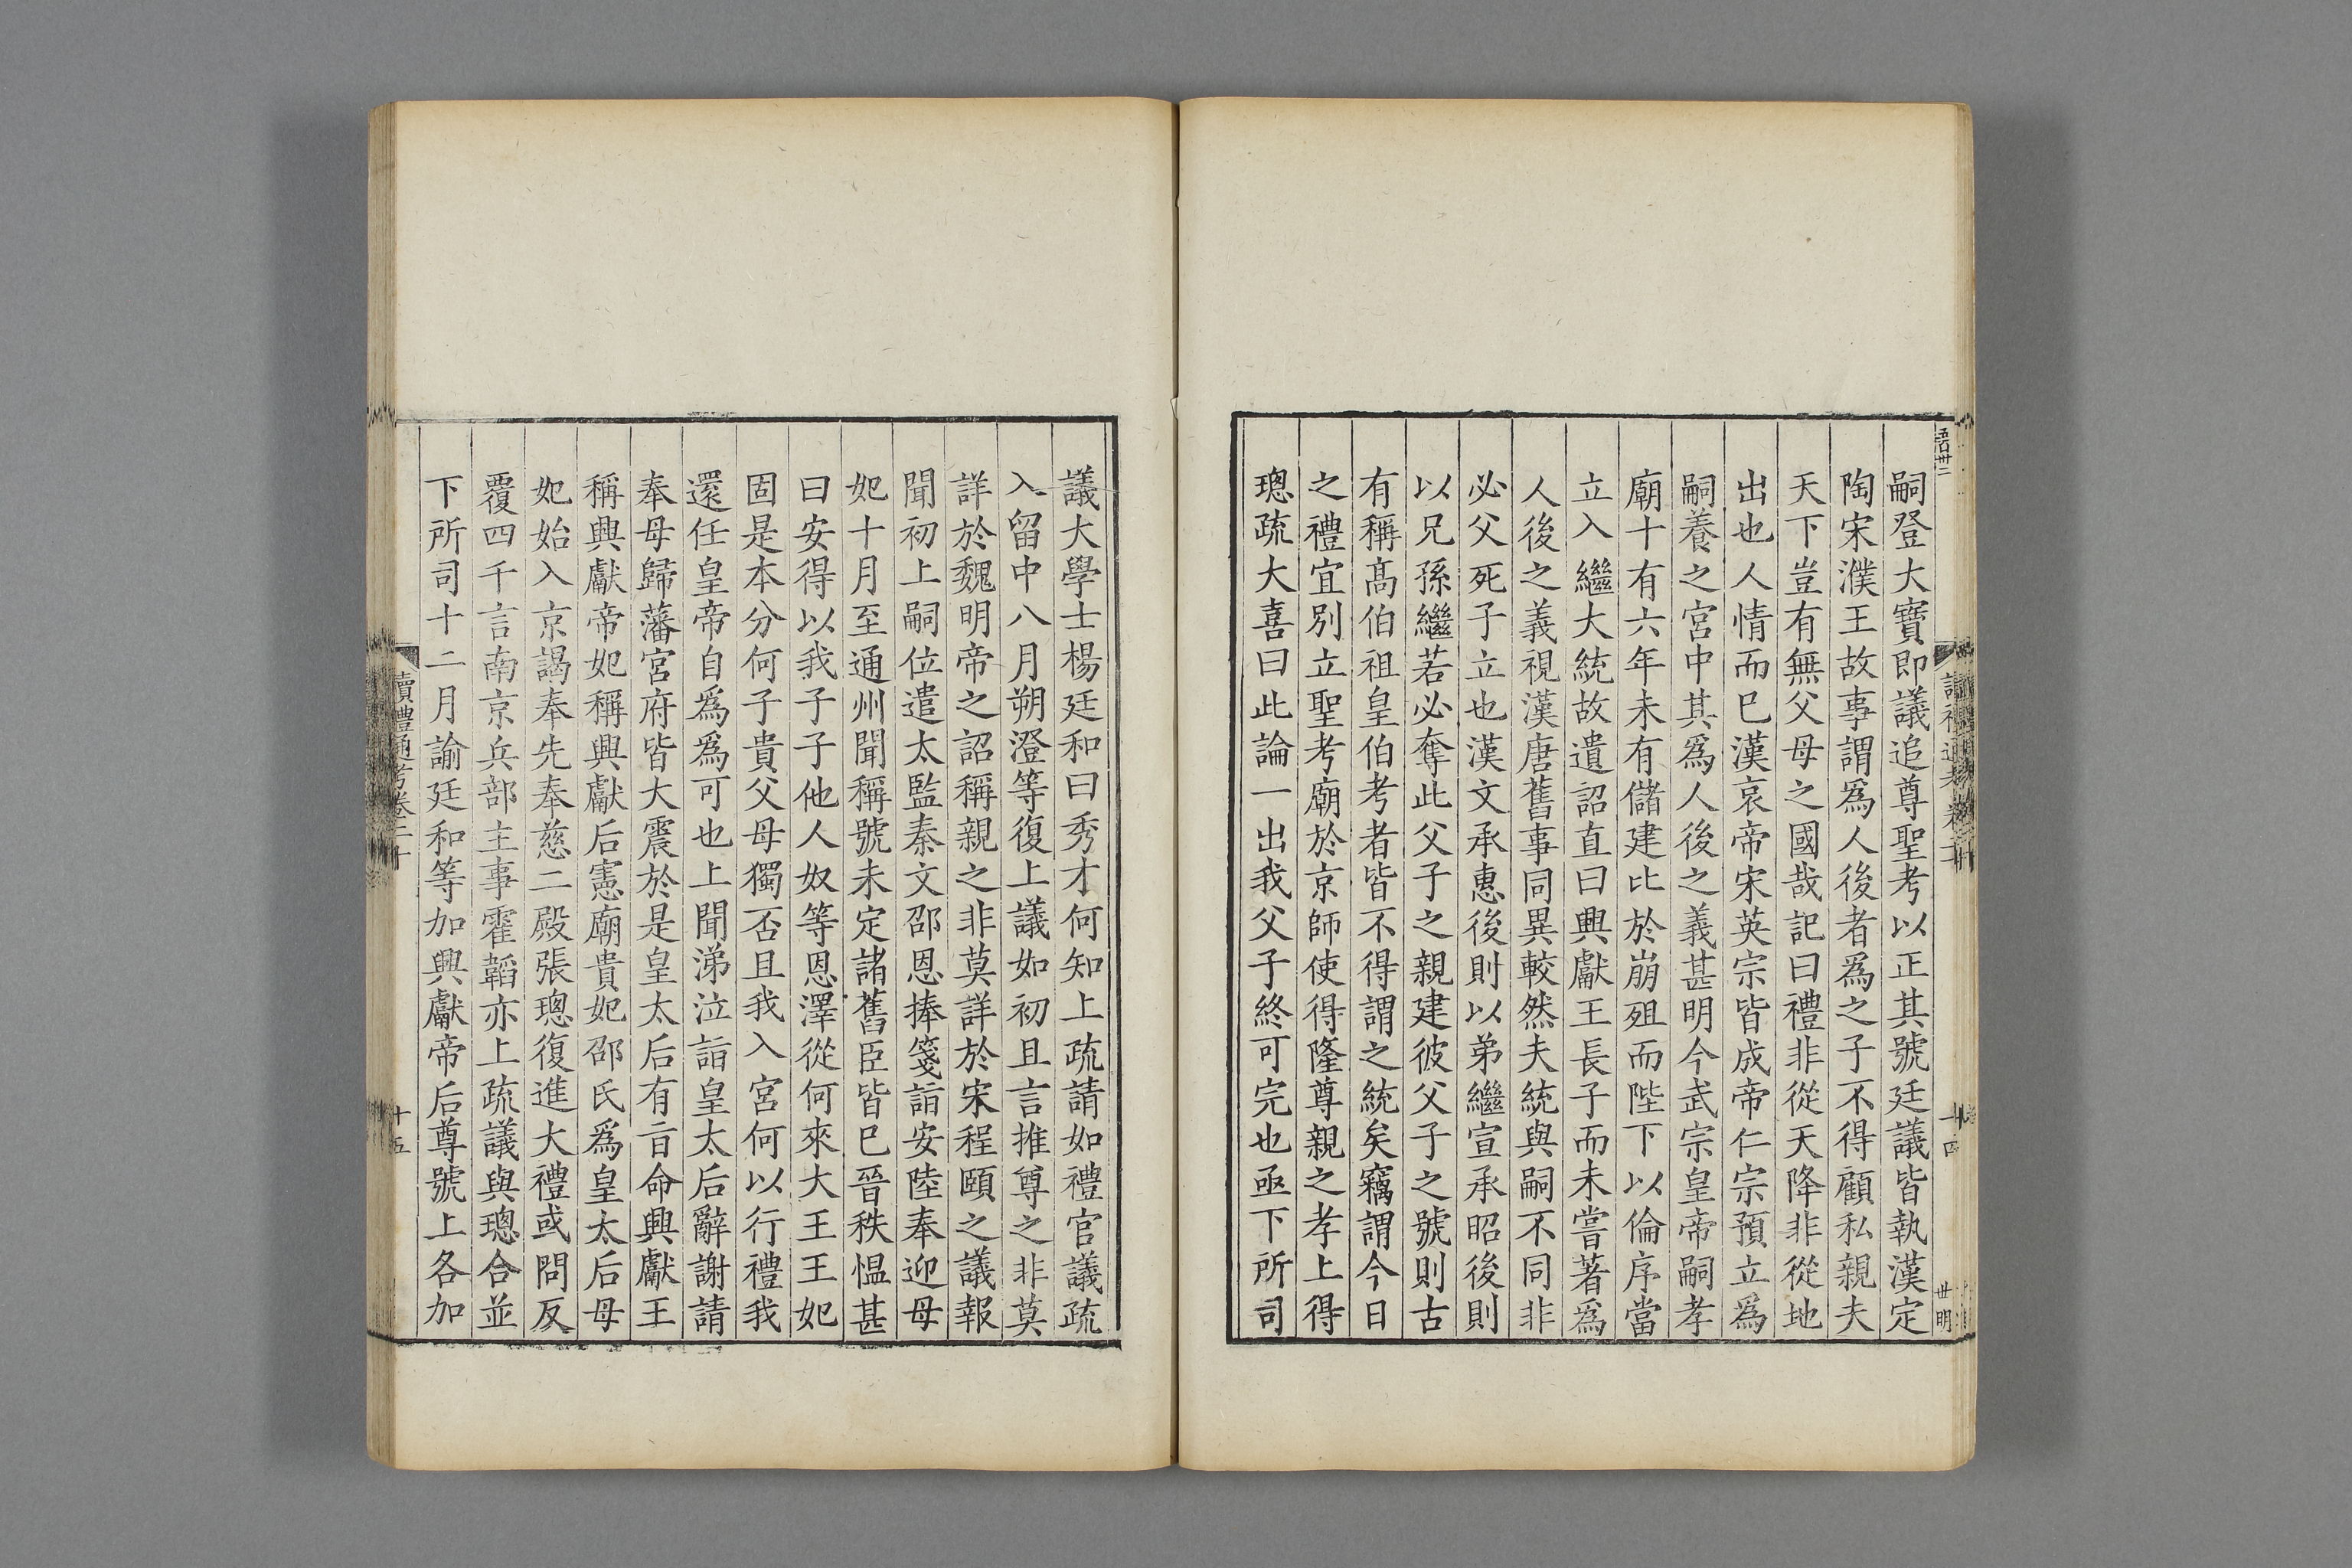 嗣登大寶即議追尊聖考以正其號廷議皆執漢定
陶宋濮王故事謂爲人後者爲之子不得顧私親夫
天下豈有無父母之國哉記曰禮非從天降非從地
出也人情而已漢哀帝宋英宗皆成帝仁宗預立爲
嗣養之宮中其爲人後之義甚明今武宗皇帝嗣孝
廟十有六年未有儲建比於崩殂而陛下以倫序當
立入繼大統故遺詔直曰興獻王長子而未嘗著爲
人後之義視漢唐舊事同異較然夫統與嗣不同非
必父死子立也漢文承惠後則以弟繼宣承昭後則
以兄孫繼若必奪此父子之親建彼父子之號則古
有稱高伯祖皇伯考者皆不得謂之統矣竊謂今日
之禮宜別立聖考廟於京師使得隆尊親之孝上得
璁疏大喜曰此論一出我父子終可完也亟下所司
議大學士楊廷和曰秀才何知上疏請如禮官議疏
入留中八月朔澄等復上議如初且言推尊之非莫
詳於魏明帝之詔稱親之非莫詳於宋程頤之議報
聞初上嗣位遣太監秦文邵恩捧箋詣安陸奉迎母
妃十月至通州聞稱號未定諸舊臣皆已晉秩慍甚
曰安得以我子子他人奴等恩澤從何來大王王妃
固是本分何子貴父母獨否且我入宮何以行禮我
還任皇帝自爲爲可也上聞涕泣詣皇太后辭謝請
奉母歸藩宮府皆大震於是皇太后有旨命興獻王
稱興獻帝妃稱興獻后憲廟貴妃邵氏爲皇太后母
妃始入京謁奉先奉慈二殿張璁復進大禮或問反
覆四千言南京兵部主事霍韜亦上疏議與璁合並
下所司十二月諭廷和等加興獻帝后尊號上各加
讀禮通考卷二十
十五